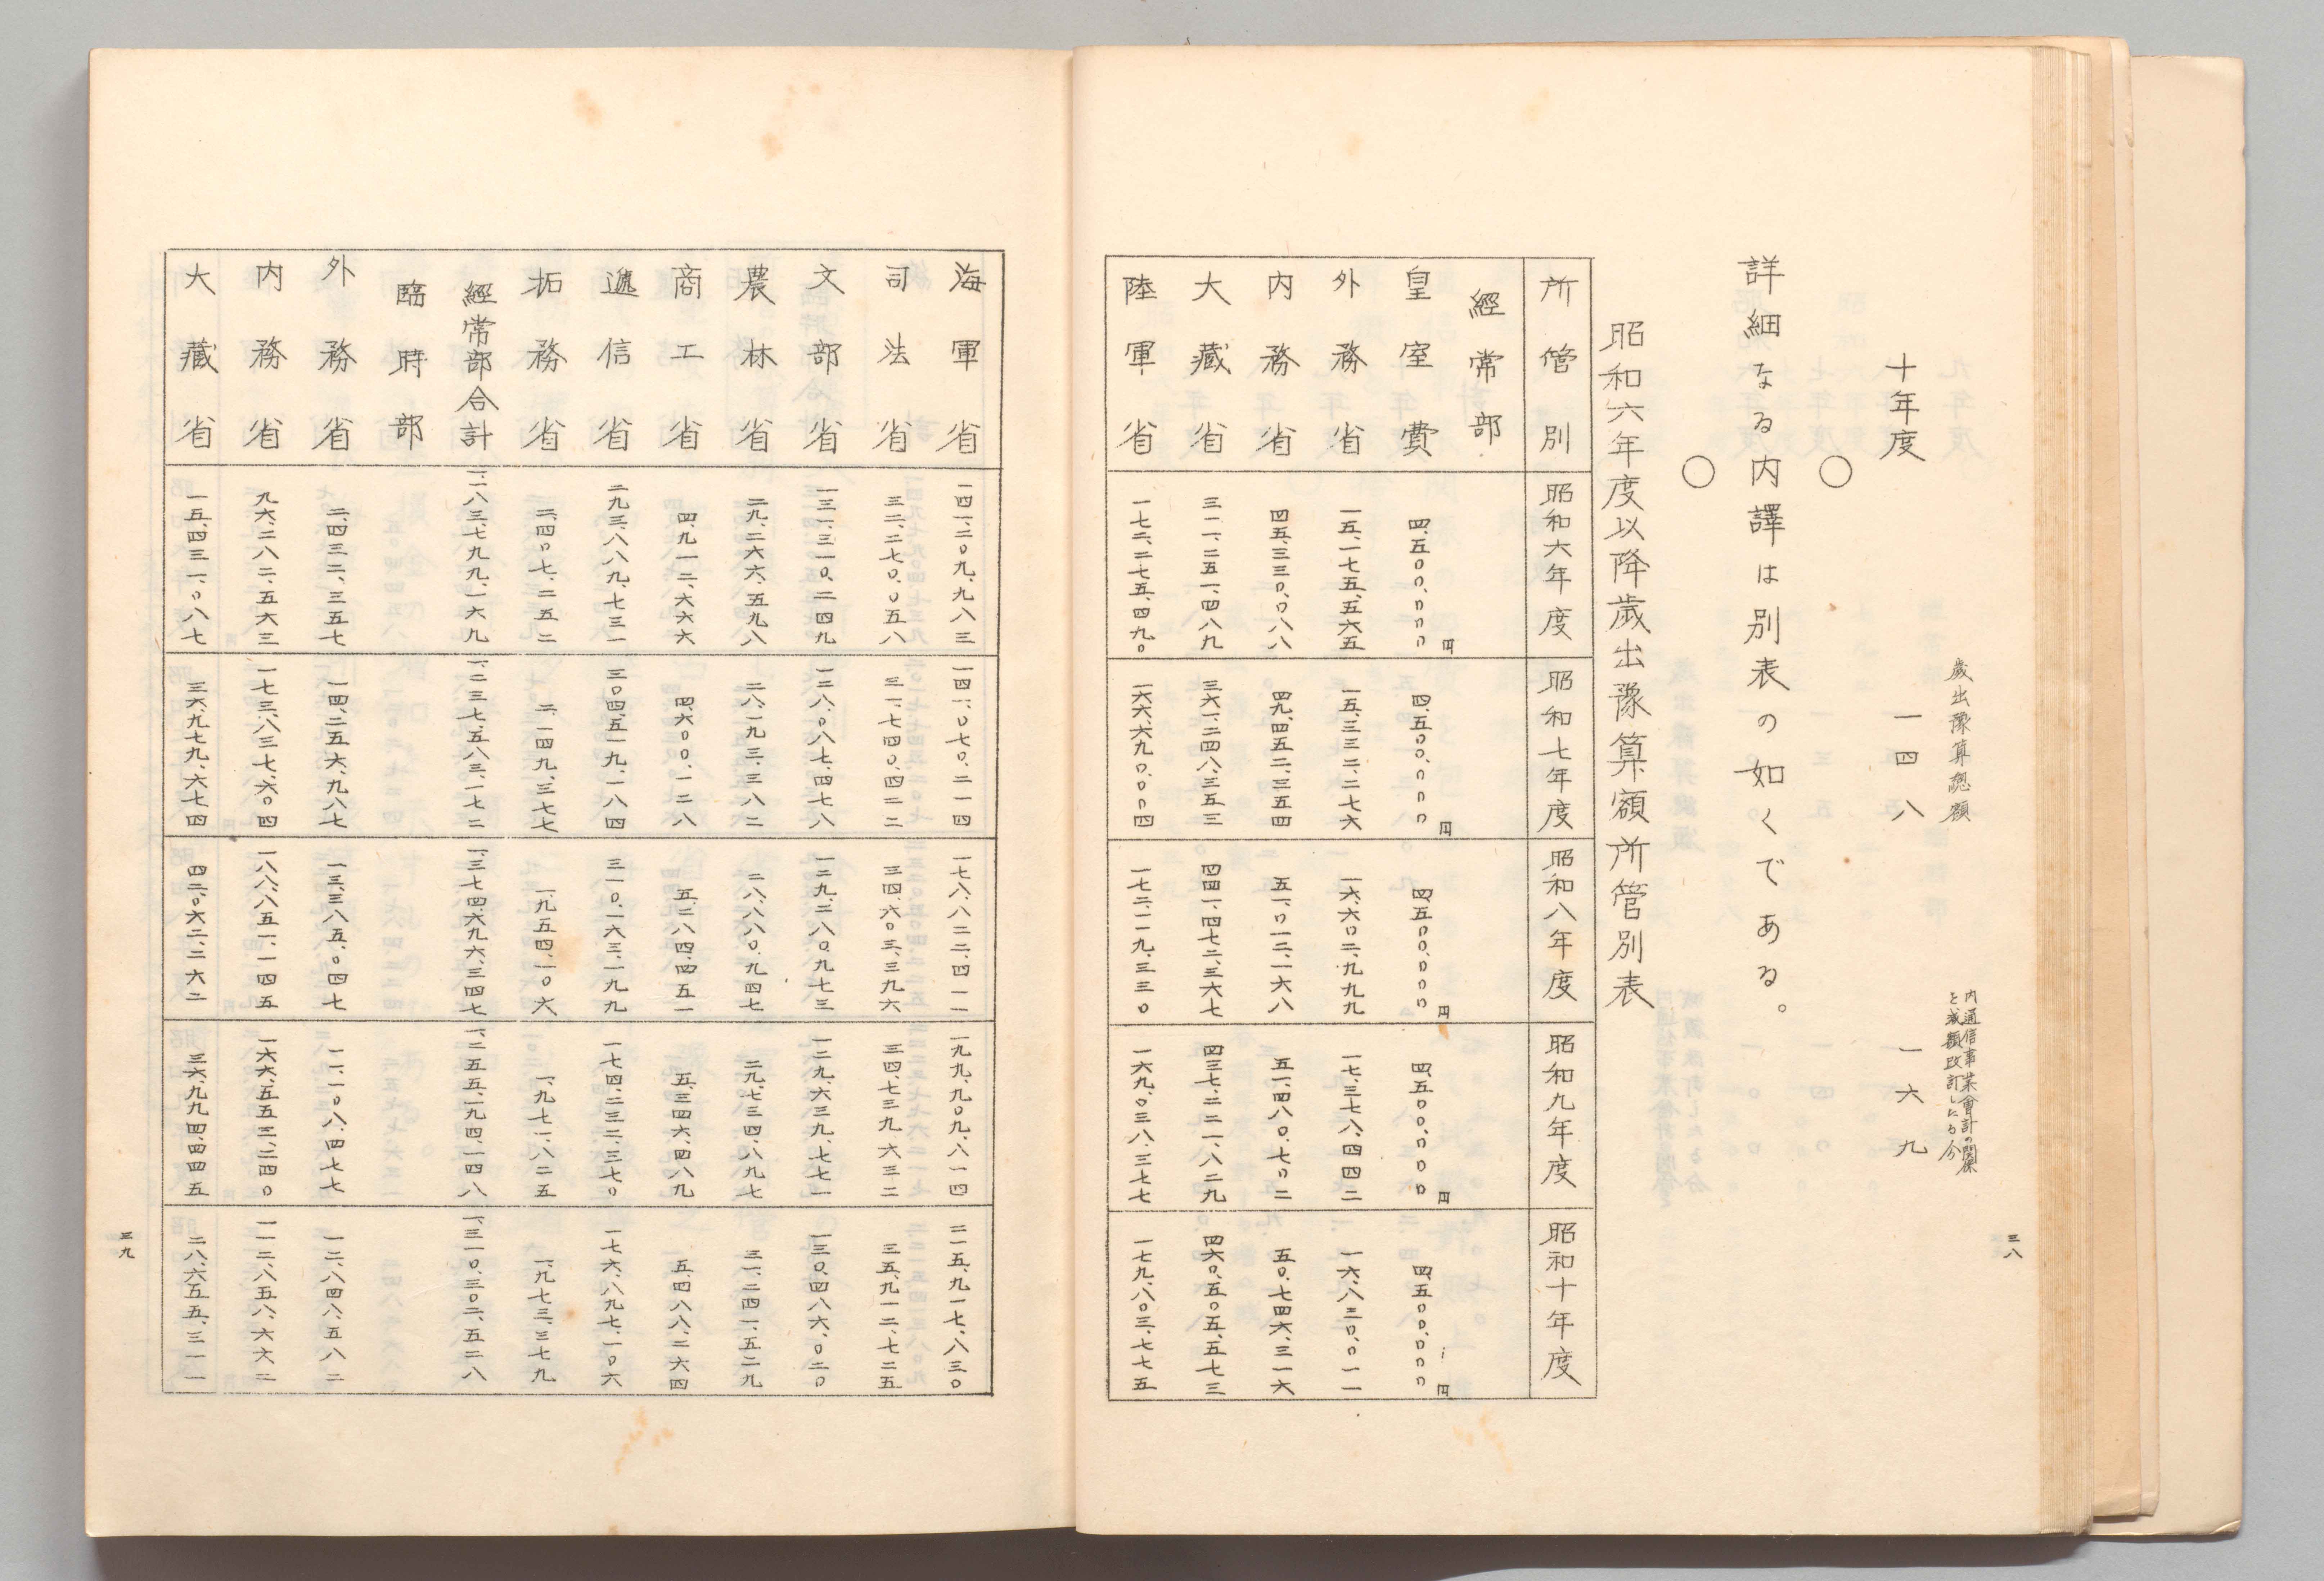 歲出豫算總額
內通信事業會計の關係
を減額改訂したる分
十年度　一四八　一六九
○
詳細なる内譯は別表の如くである。
○
昭和六年度以降歲出豫算額所管別表
所管別　昭和六年度　昭和七年度　昭和八年度　昭和九年度　昭和十年度
經常部　円　円　円　円　円
皇室費　四、五〇〇、〇〇〇　四、五〇〇、〇〇〇　四、五〇〇、〇〇〇　四、五〇〇、〇〇〇　四、五〇〇、〇〇〇
外務省　一五、一七五、五六五　一五、三三二、二七六　一六、六〇二、九九九　一七、三七八、四四二　一六、八三〇、〇一一
内務省　四五、三三〇、〇八八　四九、四五二、三五四　五一、〇一二、一六八　五一、四八〇、七〇二　五〇、七四六、三一六
大藏省　三一一、二五一、四八九　三六一、二四八、三五三　四四一、四七二、三六七　四三七、二二一、八二九　四六〇、五〇五、五七三
陸軍省　一七二、二七五、四九〇　一六六、六九〇、〇〇四　一七二、一一九、三三〇　一六九、〇三八、三七七　一七九、八〇三、七七五
三八
海軍省　一四一、二〇九、九八三　一四一、〇七〇、二一四　一七八、八二二、四一一　一九九、九〇九、八一四　二一五、九一七、八三〇
司法省　三二、二七〇、〇五八　三一、七四〇、四二二　三四、六〇三、三九六　三四、七三九、六三二　三五、九一二、七二五
文部省　一三一、三一〇、二四九　一二八、〇八七、四七八　一二九、二八〇、九七三　一二九、六三九、七七一　一三〇、四八六、〇二〇
農林省　二九、二六六、五九八　二八、一九三、三八二　二八、八八〇、九四七　二九、七三四、八九七　三一、二四一、五二九
商工省　四、九一二、六六六　四、六〇〇、一二八　五、二八四、四五一　五、三四六、四八九　五、四八八、二六四
遞信省　二九三、八八九、七三一　三〇四、五一九、一八四　三一〇、一六三、一九九　一七四、二三二、三七〇　一七六、八九七、一〇六
拓務省　二、四〇七、二五二　二、一四九、三七七　一、九五四、一〇六　一、九七一、八二五　一、九七三、三七九
經常部合計　一、一八三、七九九、一六九　一、二三七、五八三、一七二　一、三七四、六九六、三四七　一、二五五、一九四、一四八　一、三一〇、三〇二、五二八
臨時部
外務省　二、四三二、三五七　一四、二五六、九八七　一三、三八五、〇四七　一一、一〇八、四七七　一二、八四八、五八二
内務省　九六、二八二、五六三　一七三、八三七、六〇四　一八八、八五一、一四五　一六六、五五三、二四〇　一一二、八五八、六六二
大藏省　一五、四三一、〇八七　三六、九七九、六七四　四二、〇六二、二六二　三六、九九四、四四五　二八、六五五、三一一
三九